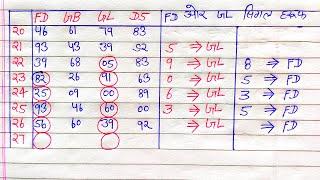 FD GB GL DS FD और GL सिंगल हरूफ
20 46 61 79 83
21 93 43 39 52 5 ⇒ GL
22 39 68 05 83 9 ⇒ GL 8 ⇒ FD
23 82 26 91 63 0 ⇒ GL 5 ⇒ FD
24 25 09 00 89 6 ⇒ GL 3 ⇒ FD
25 93 46 60 00 3 ⇒ GL 5 ⇒ FD
26 56 60 39 92 ⇒ GL ⇒ FD
27